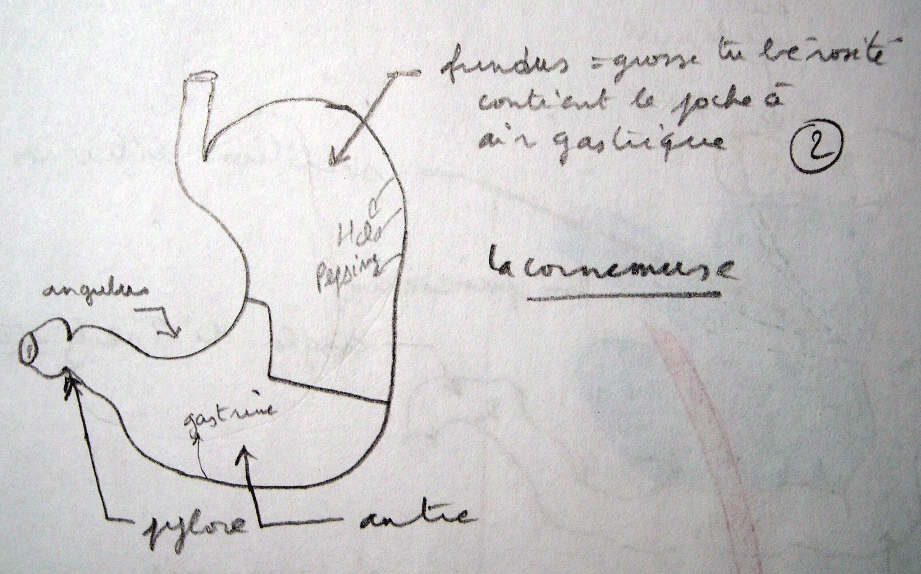 fundus = grosse tubérosité
contient la poche à
air gastrique
2
Hcl
Pepsine
la cornemuse
angulus
gastrine
pylore
antre